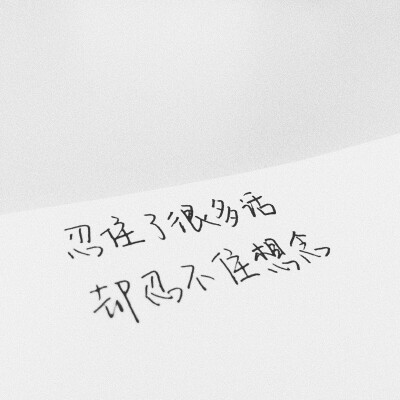 忍住了很多话
却忍不住想念